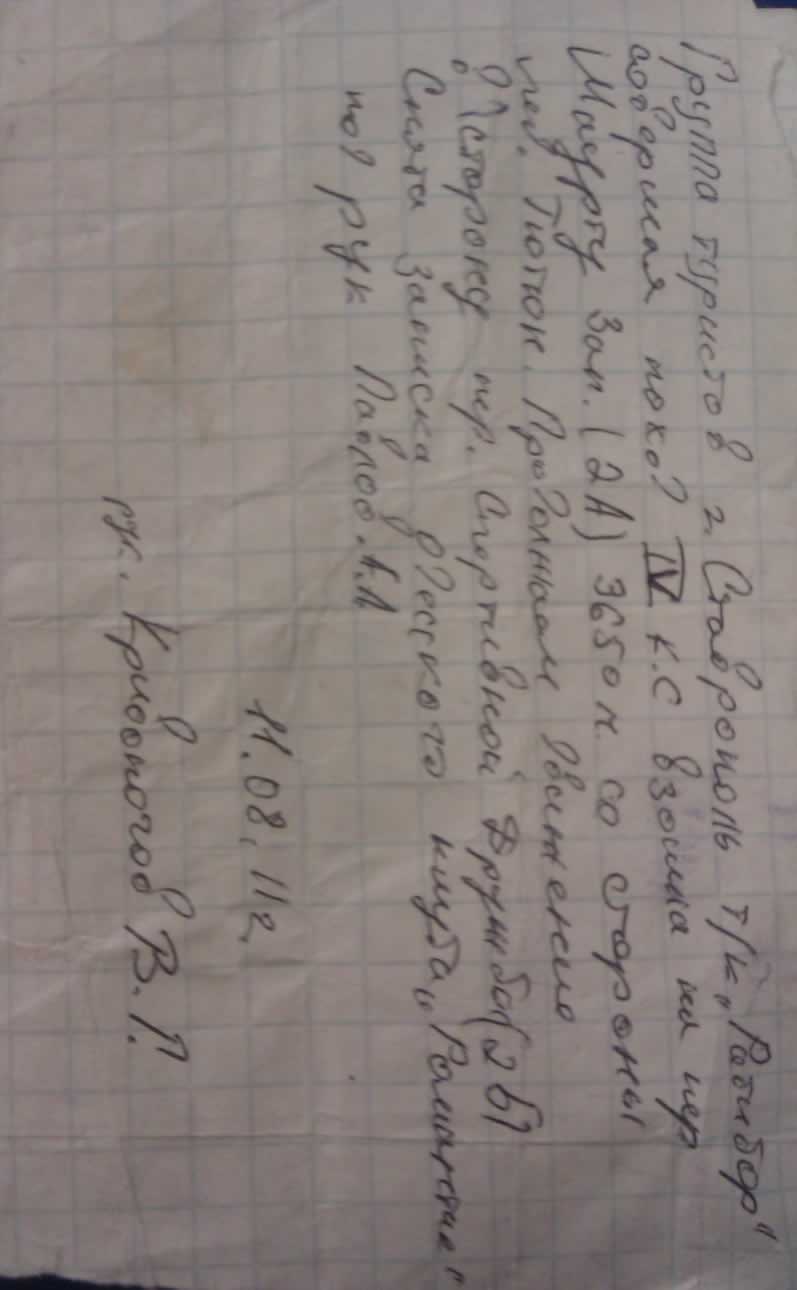 Группа туристов г. Ставрополь т/к „Ратибор"
совершая поход IV к.с взошла на пер
Шаурту Зап. (2А) 3650 м. со стороны
лед. Тютюн. Продолжаем движению
в сторону пер. Спортивной Дружбы (2Б)
Снята записка одесского клуба „Романтик"
под рук Павлов А.А
11.08.11г.
рук. Кривоногов В.П.